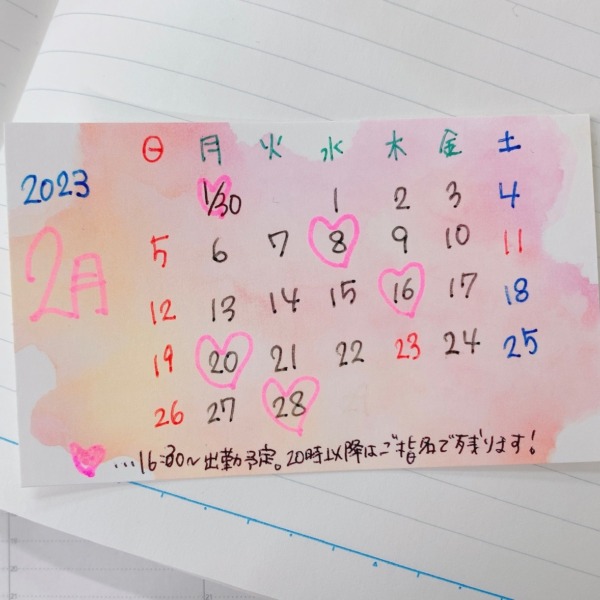 日 月 火 水 木 金 土
2023
1/30 1 2 3 4
2月
5 6 7 8 9 10 11
12 13 14 15 16 17 18
19 20 21 22 23 24 25
26 27 28
...16:30~出勤予定。20時以降はご指名で残ります!